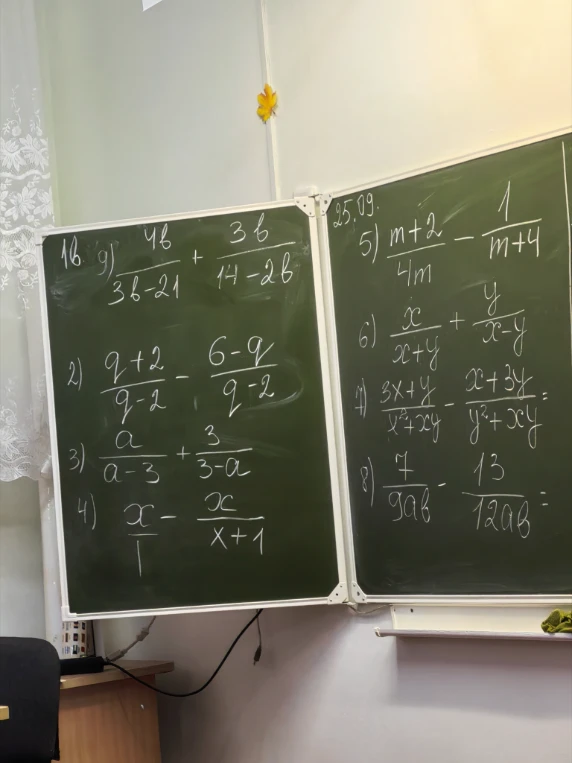 1в 9) 4в/(3в-21) + 3в/(14-2в)
2) (q+2)/(q-2) - (6-q)/(q-2)
3) a/(a-3) + 3/(3-a)
4) x/1 - x/(x+1)
25.09.
5) (m+2)/(4m) - 1/(m+4)
6) x/(x+y) + y/(x-y)
7) (3x+y)/(x²+xy) - (x+3y)/(y²+xy) =
8) 7/(9ab) - 13/(12ab) =